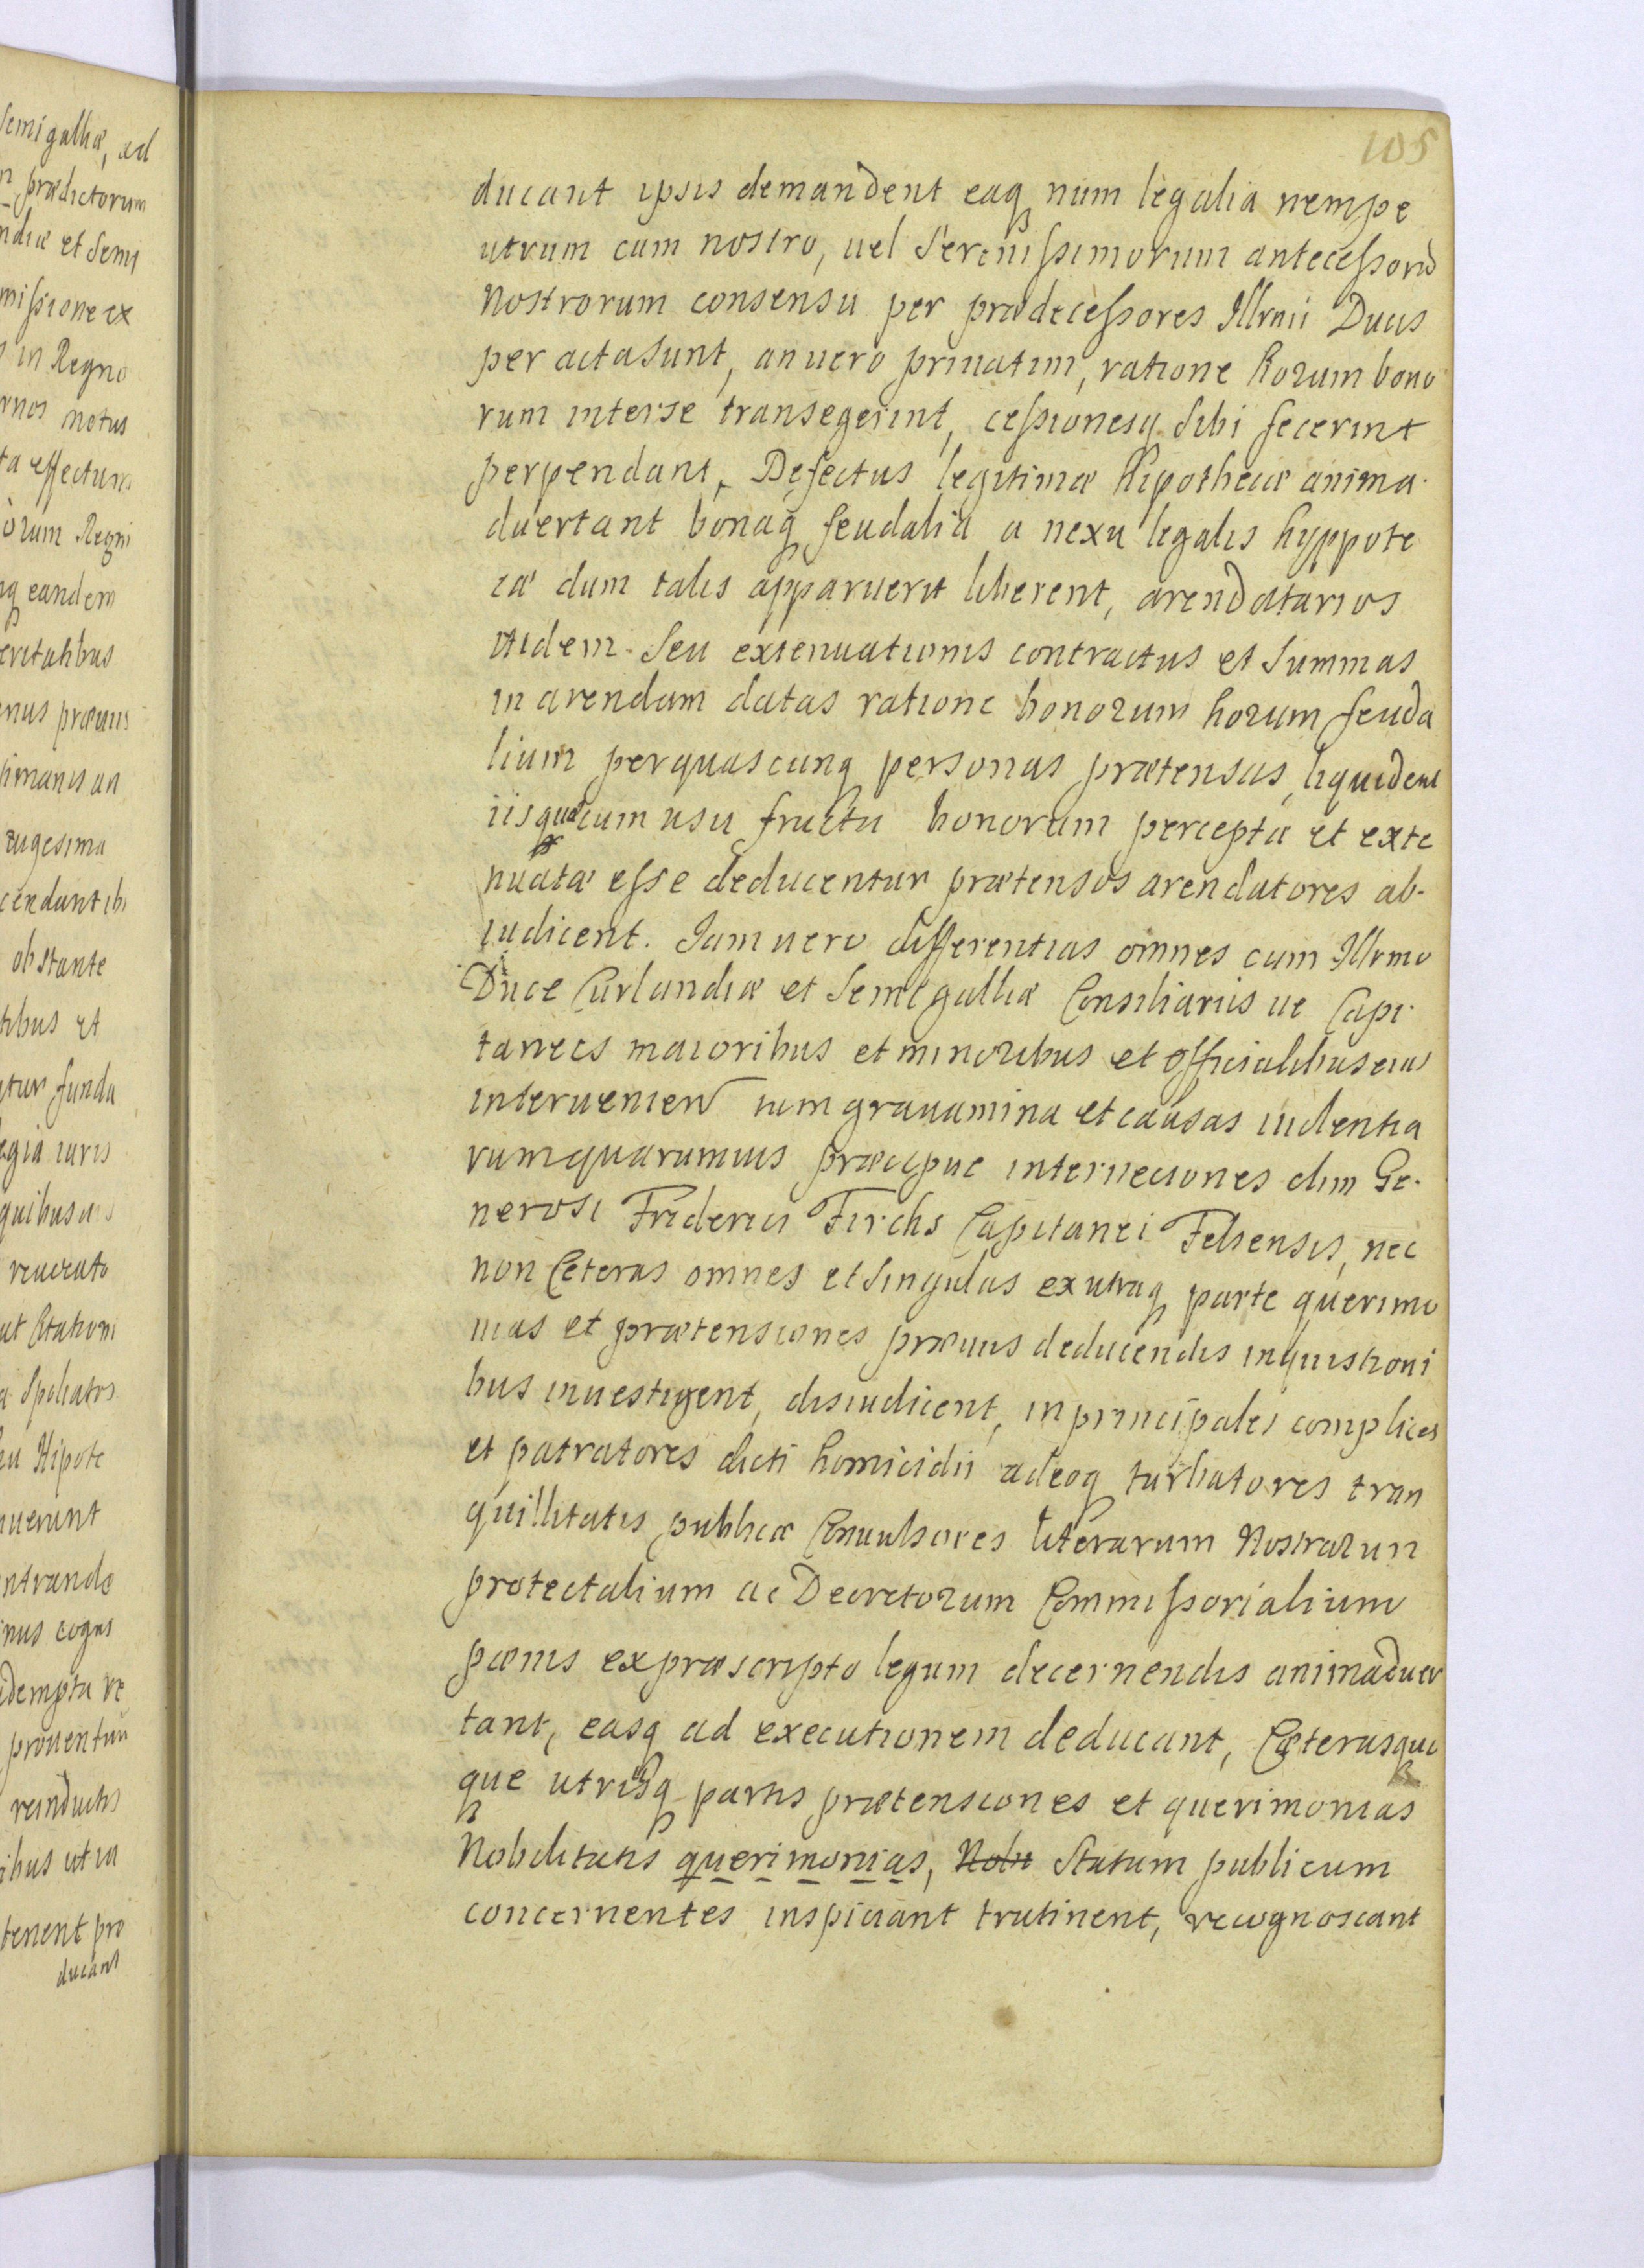 semigalliæ, ad
prædictorum
ndiæ et Semi
missione ex
in Regno
rnos notus
ta effectum
orum Regni
nq eandem
eritatibus
enus præuiis
simanis an
cendant ibi
obstante
tibus et
tur funda
egia iuris
quibusuis
reuerato
ut Citationi
a Spoliatos
eu Hipote
nuerunt
ntrande
inus cogni
idempta re
prouentuu
reinductis
ibus ut in
tenent pro
ducant
105
ducant ipsis demandent eaq num legalia nempe
utrum cum nostro, uel Serenissimorum antecessorū
nostrorum consensu per prædecessores Illrmi Ducis
per acta sunt, an uero priuatim, ratione horum bono
rum inter se transegerint, cessionesq sibi fecerint
perpendant, Defectus legitimæ Hipothecæ anima
duertant bonaq feudalia a nexu legalis hyppote
cæ dum talis apparuerit liberent, arendatarios
itidem seu extenuationis contractus et summas
in arendam datas ratione bonorum horum feuda
lium per quascunq personas prætensas, liquident
iisque cum usu fructu bonorum percepta et exte
nuatæ esse deducentur prætensos arendatores ab-
iudicent. Iam uero differentias omnes cum Illrmo
Duce Curlandiæ et Semigalliæ Consiliariis ue Capi
taneis maioribus et minoribus et officialibus eius
interuenien tum grauamina et causas iudentia
rumquarumuis præcipue interneciones olim Ge-
nerosi Friderici Firchs Capitanei Felsensis, nec
non Ceteras omnes et singulas ex utraq parte querimo
nias et prætensiones præuiis deducendis inquistioni
bus inuestigent, disiudicent, in principales complices
et patratores dicti homicidii adeoq turbatores tran
quillitatis publicæ Conuulsores literarum Nostrarum
protectalium ac Decretorum Commissorialium
pænis ex præscripto legum decernendis animaduer
tant, easq ad executionem deducant, Cæterasque
que utrisq partis prætensiones et querimonias
Nobilitatis querimonias, Nobit Statum publicum
concernentes inspiciant trutinent, recognoscant